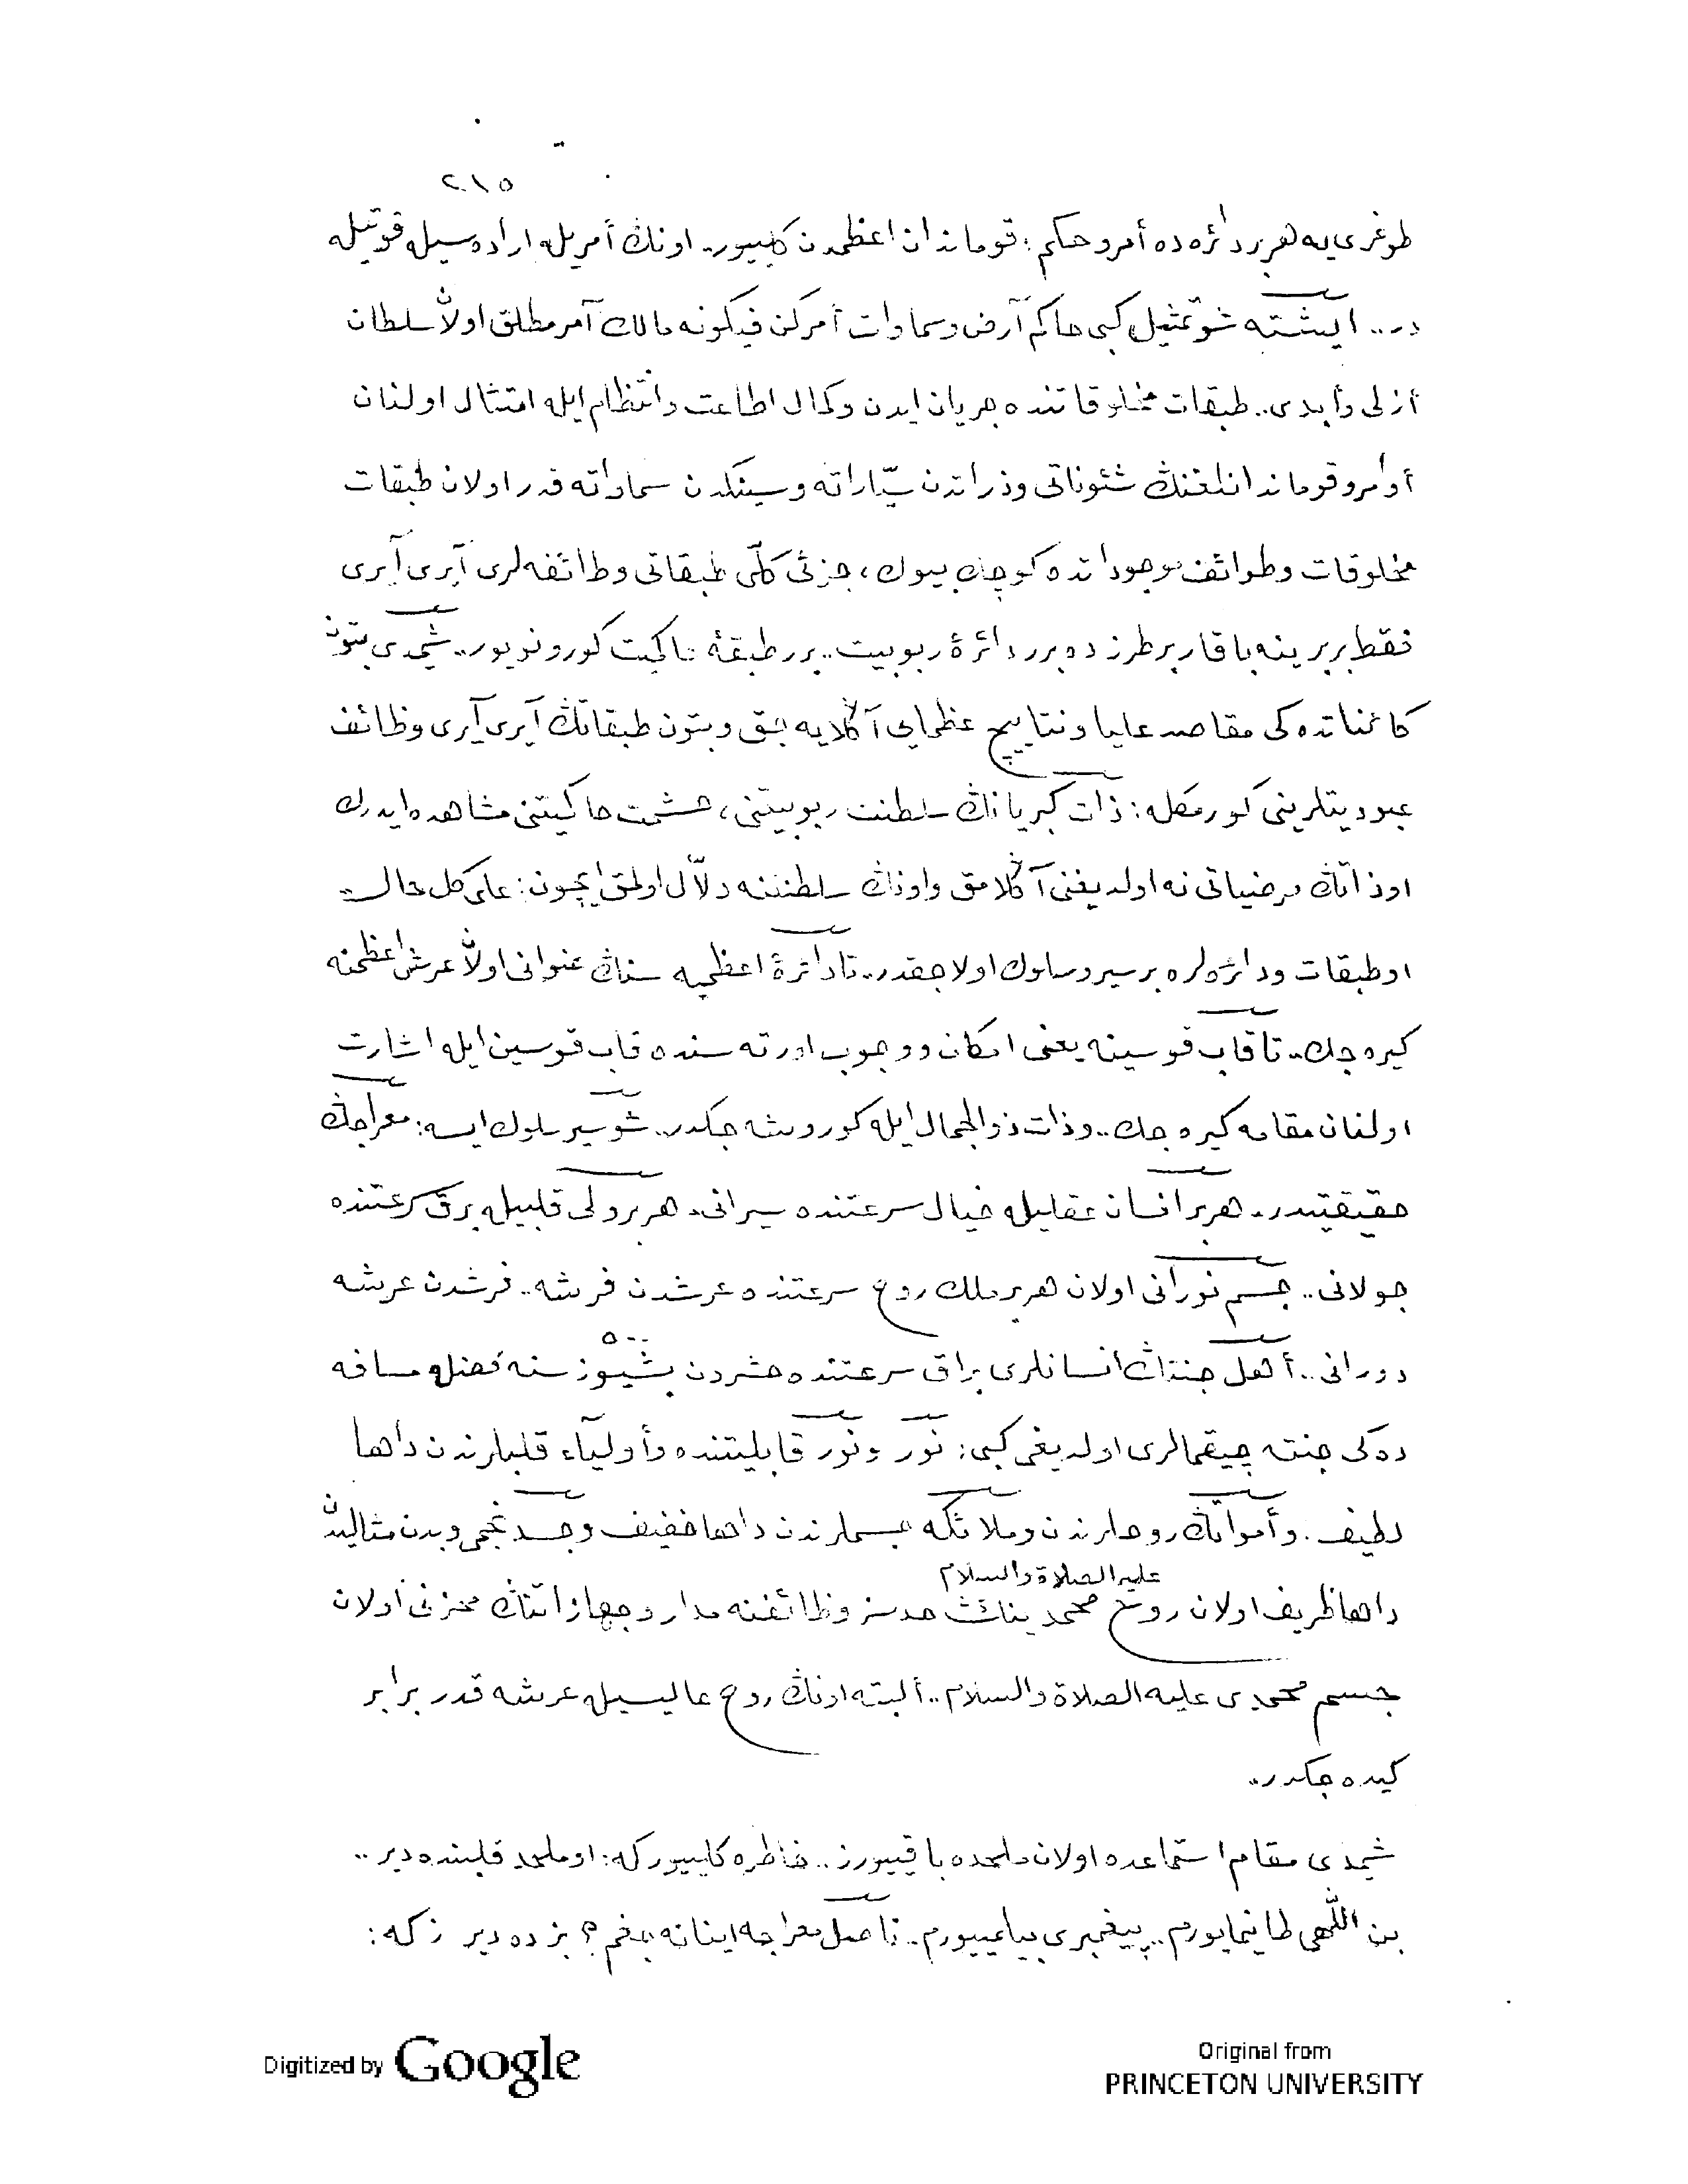 ٢١٥
طوغرى يه هر بر دائره ده أمر و حكم : قوماندان اعظمدن كلييور.. اونڭ أمريله اراده سيله قوتيله
در.. ايشته شو تمثيل كبى حاكم أرض و سماوات أمر كن فيكونه مالك آمر مطلق اولان سلطان
أزلى و أبدى.. طبقات مخلوقاتنده جريان ايدن و كمال اطاعت و انتظام ايله امتثال اولنان
أوامر و قوماندانلغنڭ شئوناتى و ذراتدن سيّاراته و سينكدن سماواته قدر اولان طبقات
مخلوقات و طوائف موجوداتده كوچك بيوك ، جزئى كلّى طبقاتى و طائفه لرى آيرى آيرى
فقط بربرينه باقار بر طرزده برر دائرۀ ربوبيت.. برر طبقۀ حاكميت كورونويور.. شيمدى بتون
كائناتده كى مقاصد عاليا و نتايج عظمايى آڭلايه جق و بتون طبقاتڭ آيرى آيرى وظائف
عبوديتلرينى كورمكله : ذات كبريانڭ سلطنت ربوبيتنى ، حشمت حاكميتنى مشاهده ايدرك
او ذاتڭ مرضياتى نه اولديغنى آڭلامق و اونڭ سلطنتنه دلّال اولمق ايچون : على كل حال ..
او طبقات و دائره لره بر سير و سلوك اولاجقدر.. تا دائرۀ اعظميه سنڭ عنوانى اولان عرش اعظمنه
كيره جك.. تا قاب قوسينه يعنى امكان و وجوب اورته سنده قاب قوسين ايله اشارت
اولنان مقامه كيره جك.. و ذات ذوالجمال ايله كوروشه جكدر.. شو سير سلوك ايسه : معراجڭ
حقيقتيدر.. هر بر انسان عقليله خيال سرعتنده سيرانى.. هر بر ولى قلبيله برق سرعتنده
جولانى.. جسم نورانى اولان هر بر ملك روح سرعتنده عرشدن فرشه.. فرشدن عرشه
٥٠٠
دورانى.. أهل جنتڭ انسانلرى براق سرعتنده حشردن بشيوز سنه فضله مسافه
ده كى جنته چيقمالرى اولديغى كبى : نور و نور قابليتنده و أولياء قلبلرندن داها
لطيف. و أمواتڭ روحلرندن و ملائكه جسملرندن داها خفيف و جسد نجمى و بدن مثاليدن
عليه الصلاة والسلام
داها ظريف اولان روح محمديه نڭ حدسز وظائفنه مدار و جهازاتنڭ مخزنى اولان
جسم محمدى عليه الصلاة والسلام.. ألبته اونڭ روح عاليسيله عرشه قدر برابر
كيده جكدر..
شيمدى مقام استماعده اولان ملحده باقييورز.. خاطره كلييوركه : او ملحد قلبنده دير ..
بن اللّٰهى طانيمايورم.. پيغمبرى بيلمييورم.. ناصل معراجه اينانه جغم ؟ بزده ديرزكه :
Digitized by Google
Original from
PRINCETON UNIVERSITY